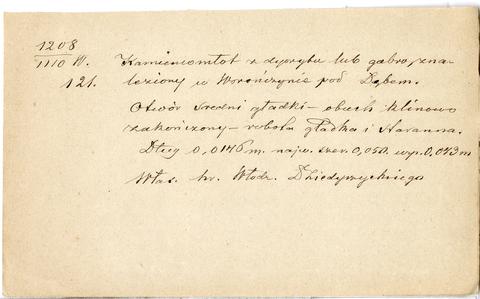 1208
1110 W. Kamieniomłot z dyorytu lub gabro, zna-
121. leziony w Worończynie pod Dębem.
Otwór średni gładki – obuch klinowo
zakończony – robota gładka i staranna.
Dług 0,0146 m. najw. szer. 0,050. wys. 0,043 m
Włas. hr. Włodz. Dzieduszyckiego